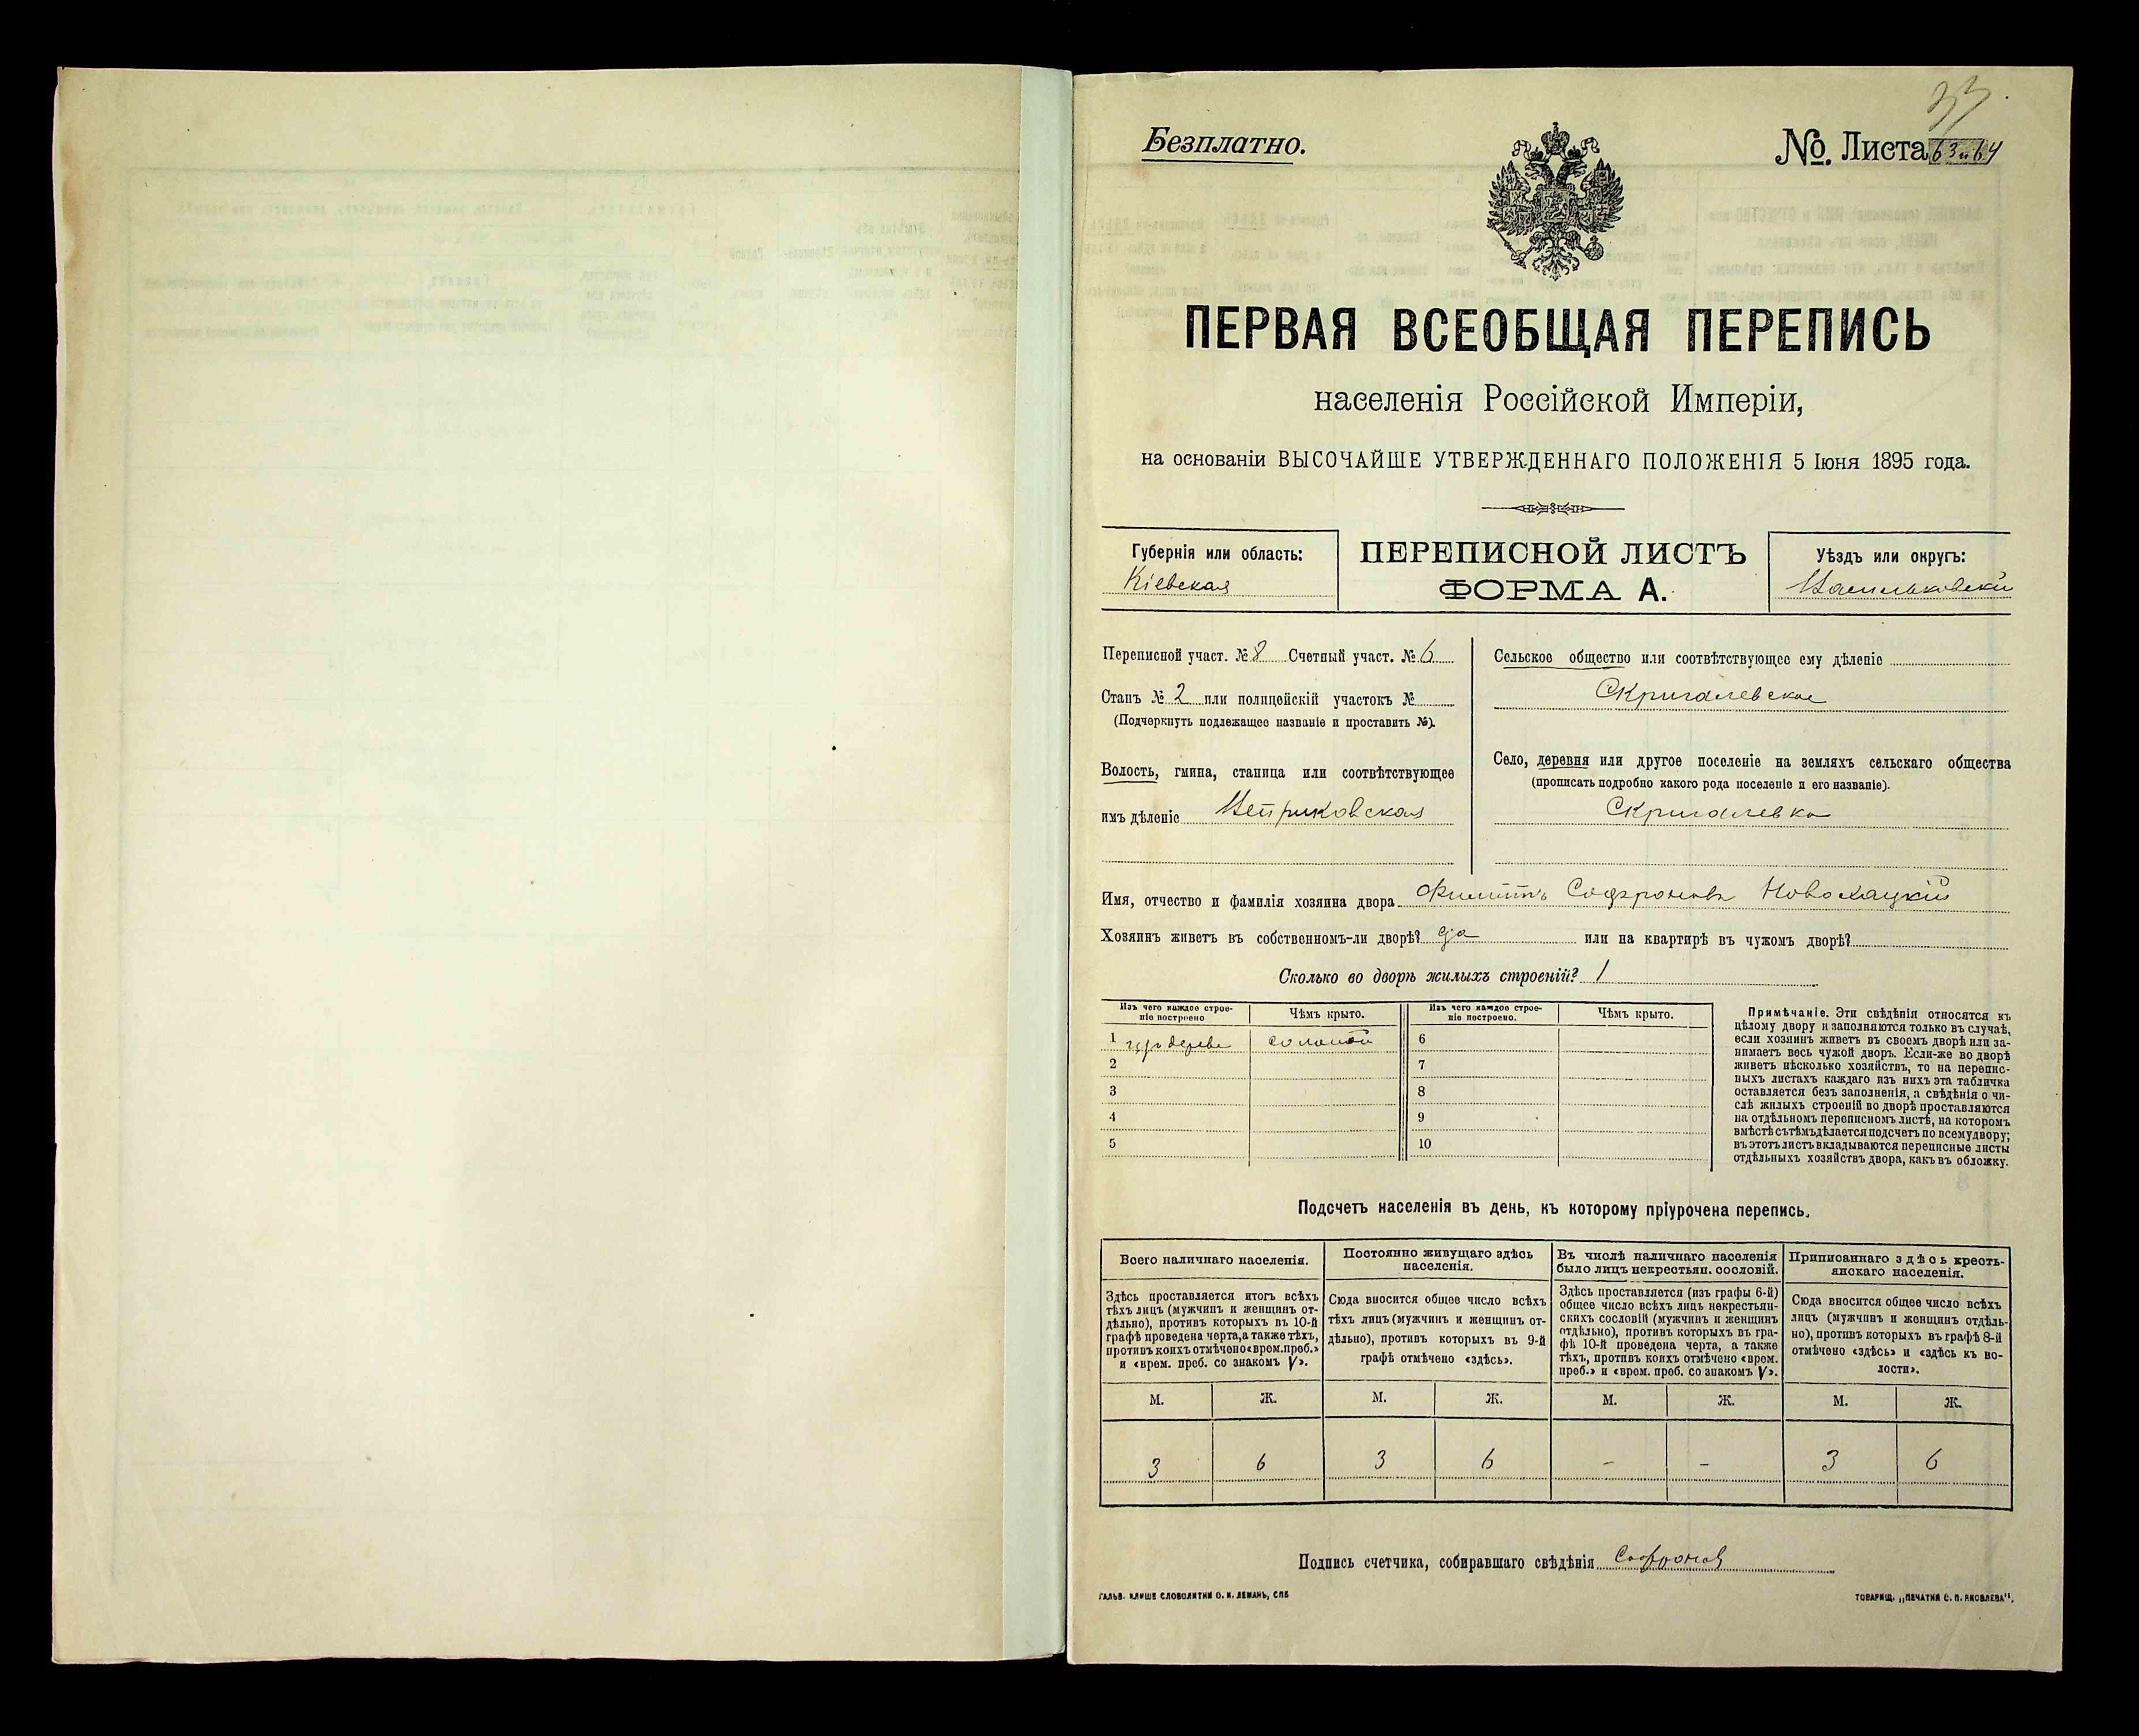 33
Безплатно.
№. Листа 63 и 64
ПЕРВАЯ ВСЕОБЩАЯ ПЕРЕПИСЬ
населенія Россійской Имперіи,
на основаніи ВЫСОЧАЙШЕ УТВЕРЖДЕННАГО ПОЛОЖЕНІЯ 5 Іюня 1895 года.
Губернія или область:
Кіевская
ПЕРЕПИСНОЙ ЛИСТЪ
ФОРМА А.
Уѣздъ или округъ:
Васильковскій
Переписной участ. № 8 Счетный участ. № 6
Станъ № 2 или полицейскій участокъ №
(Подчеркнуть подлежащее названіе и проставить №).
Волость, гмина, станица или соотвѣтствующее
имъ дѣленіе
Сельское общество или соотвѣтствующее ему дѣленіе
Скригалевское
Село, деревня или другое поселеніе на земляхъ сельскаго общества
(прописать подробно какого рода поселеніе и его названіе).
Скригалевка
Имя, отчество и фамилія хозяина двора Филиппъ Софроновъ Новохацкій
Хозяинъ живетъ въ собственномъ-ли дворѣ? да или на квартирѣ въ чужомъ дворѣ?
Сколько во дворѣ жилыхъ строеній? 1
Изъ чего каждое строе-
ніе построено
Чѣмъ крыто.
Изъ чего каждое строе-
ніе построено.
Чѣмъ крыто.
1 изъ дерева соломой 6
2 7
3 8
4 9
5 10
Примѣчаніе. Эти свѣдѣнія относятся къ
цѣлому двору и заполняются только въ случаѣ,
если хозяинъ живетъ въ своемъ дворѣ или за-
нимаетъ весь чужой дворъ. Если-же во дворѣ
живетъ нѣсколько хозяйствъ, то на перепис-
ныхъ листахъ каждаго изъ нихъ эта табличка
оставляется безъ заполненія, а свѣдѣнія о чи-
слѣ жилыхъ строеній во дворѣ проставляются
на отдѣльномъ переписномъ листѣ, на которомъ
вмѣстѣ съ тѣмъ дѣлается подсчетъ по всему двору;
въ этотъ листъ вкладываются переписные листы
отдѣльныхъ хозяйствъ двора, какъ въ обложку.
Подсчетъ населенія въ день, къ которому пріурочена перепись.
Всего наличнаго населенія.
Здѣсь проставляется итогъ всѣхъ
тѣхъ лицъ (мужчинъ и женщинъ от-
дѣльно), противъ которыхъ въ 10-й
графѣ проведена черта, а также тѣхъ,
противъ коихъ отмѣчено «врем. преб.»
и «врем. преб. со знакомъ V».
Постоянно живущаго здѣсь
населенія.
Сюда вносится общее число всѣхъ
тѣхъ лицъ (мужчинъ и женщинъ от-
дѣльно), противъ которыхъ въ 9-й
графѣ отмѣчено «здѣсь».
Въ числѣ наличнаго населенія
было лицъ некрестьян. сословій.
Здѣсь проставляется (изъ графы 6-й)
общее число всѣхъ лицъ некрестьян-
скихъ сословій (мужчинъ и женщинъ
отдѣльно), противъ которыхъ въ гра-
фѣ 10-й проведена черта, а также
тѣхъ, противъ коихъ отмѣчено «врем.
преб.» и «врем. преб. со знакомъ V».
Приписаннаго здѣсь кресть-
янскаго населенія.
Сюда вносится общее число всѣхъ
лицъ (мужчинъ и женщинъ отдѣль-
но), противъ которыхъ въ графѣ 8-й
отмѣчено «здѣсь» и «здѣсь къ во-
лости».
М. Ж. М. Ж. М. Ж. М. Ж.
3 6 3 6 - - 3 6
Подпись счетчика, собиравшаго свѣдѣнія
ГАЛЬВ. КЛИШЕ СЛОВОЛИТНИ О. И. ЛЕМАНЪ, СПБ
ТОВАРИЩ. „ПЕЧАТНЯ С. П. ЯКОВЛЕВА".